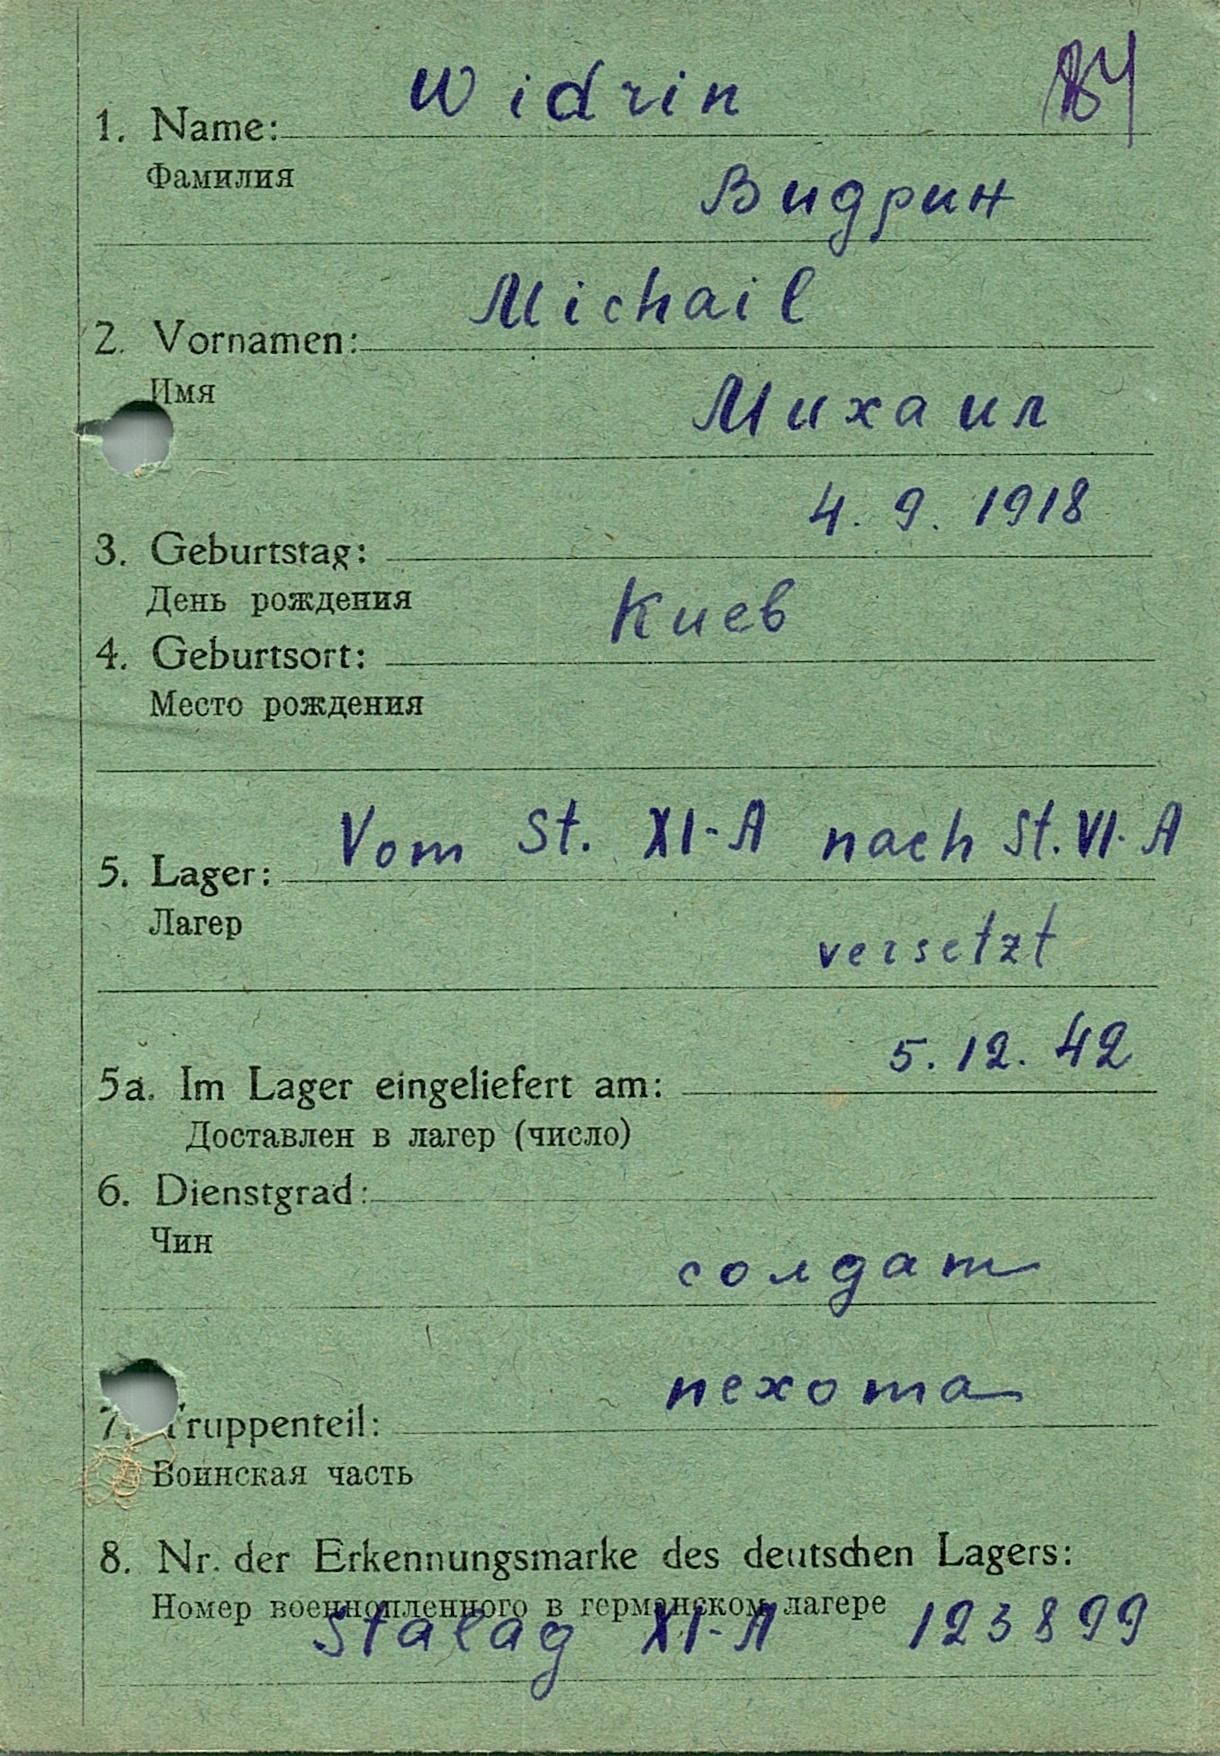 Widrin
1. Name:
Фамилия
Видрин
Michail
2. Vornamen:
Имя
Михаил
4. 9. 1918
3. Geburtstag:
День рождения
Киев
4. Geburtsort:
Место рождения
Vom St. XI-A nach St. VI-A
5. Lager:
Лагер
versetzt
5. 12. 42
5a. Im Lager eingeliefert am:
Доставлен в лагер (число)
6. Dienstgrad:
Чин
солдат
пехота
7. Truppenteil:
Воинская часть
8. Nr. der Erkennungsmarke des deutschen Lagers:
Номер военнопленного в германском лагере
Stalag XI-A 123899